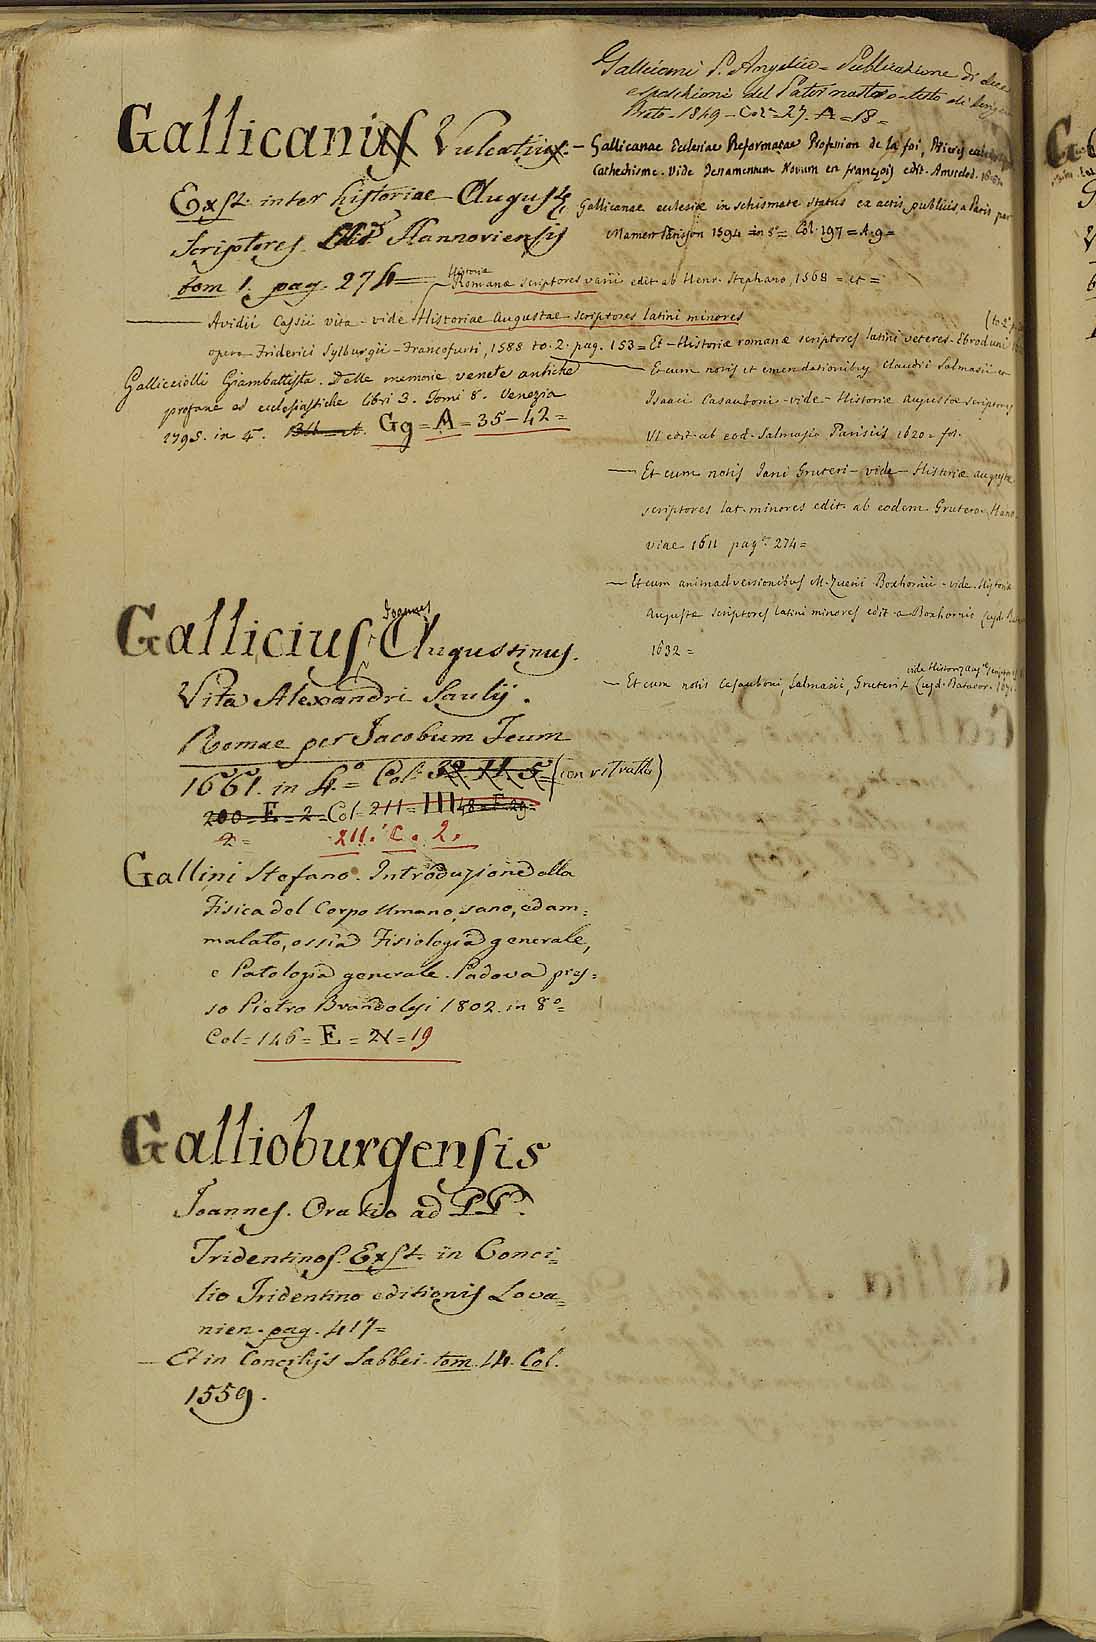 Gallicani Vulcatii
Exst. inter historiae Augustę
Scriptores Edit.s Hannoviensis
tom 1. pag. 274
Avidii Cassii vita - vide Historiae Augustae scriptores latini minores
opera Friderici Sylburgii - Francofurti, 1588 to. 2. pag. 153 = Et - Historiæ romanæ scriptores latini veteres - Ebroduni
Historiæ
Romanæ scriptores varii edit. ab Henr. Stephano, 1568 = et =
Gallicciolli Giambattista. Delle memorie venete antiche
profane ed ecclesiastiche libri 3. Tomi 8. Venezia
1795. in 4. Gg = A = 35 - 42 =
Gallicius, Joannes Augustinus.
Vita Alexandri Saulij.
Romae per Jacobum
1661. in 4.o = Col. 32. 11. 5 = (con vitratta)
200 = E = 2 = Col = 211 = III 48 = F. 29 =
2 = 211. C. 2.
Gallini Stefano. Introduzione alla
Fisica del Corpo Umano, sano, ed am=
malato, ossia Fisiologia generale,
e Patologia generale. Padova pres=
so Pietro Brandolesi 1802. in 8o =
Col = 146 = E = 21 = 19
Gallioburgensis
Joannes. Oratio ad PP.
Tridentinos. Exst. in Conci=
lio Tridentino editionis Lova=
nien. pag. 417 =
— Et in Concilijs Labbei. tom. 14. Col.
1559.
Galliciani P. Angelico = Publicazione di due
esposizioni del Pater nostro - testo di lingua
Prato - 1849 - Col.e = 27 - A = 18 =
— Gallicanae Ecclesiae Reformatae Profession de la foi, Prieres
Cathechisme. Vide Testamentum Novum en françois edit. Amstelod.
Gallicanæ ecclesiæ in schismate status ex actis publicis a Paris par
Mamert Patisson 1594 = in 8o = Col. 197 = A. 9 =
— Et cum notis et emendationibus Claudii Salmasii et
Isaaci Casauboni - vide - Historiæ Augustæ scriptores
VI edit. ab eod. Salmasio Parisiis 1620 = fol.
— Et cum notis Jani Gruteri - vide - Historiæ augustæ
scriptores lat. minores edit. ab eodem Grutero. Hano=
viae 1611 pag. 274 =
— Et cum animadversionibus M. Zuerii Boxhornii - vide. Historiæ
Augustæ scriptores latini minores edit. a Boxhornio Lugd.
1632 =
— Et cum notis Casauboni, Salmasii, Gruteri Lugd. Batavor.